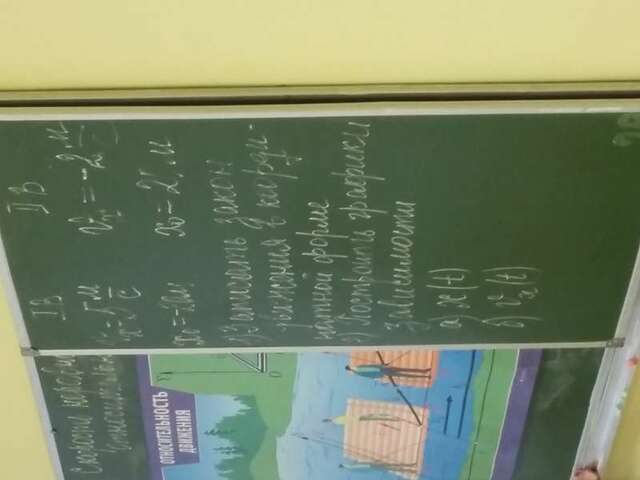 Скорости неравн
относительн
ОТНОСИТЕЛЬНОСТЬ
ДВИЖЕНИЯ
I В
II В
Vx = 5 м/с
Vx = -2 м/с
x₀ = -20м
x₀ = 25 м
1) Записать закон
движения в коорди-
натной форме
2) Построить графики
зависимости
а) x(t)
б) Vx(t)